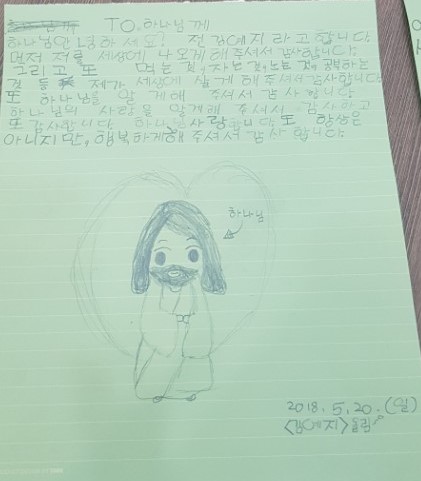 TO.하나님께
하나님안녕하세요! 전김예지라고합니다
먼저 저를 세상에 나오게해주셔서감사합니다
그리고 또 먹는것, 자는것, 노는것, 공부하는
것 등 제가 세상에 살게해주셔서감사합니다
또 하나님을 알게해 주셔서 감사합니다
하나님의 사랑을 알게해 주셔서 감사하고
또감사합니다 하나님사랑합니다 또 항상은
아니지만, 행복하게해 주셔서 감사합니다
하나님
2018. 5. 20. (일)
<김예지>올림